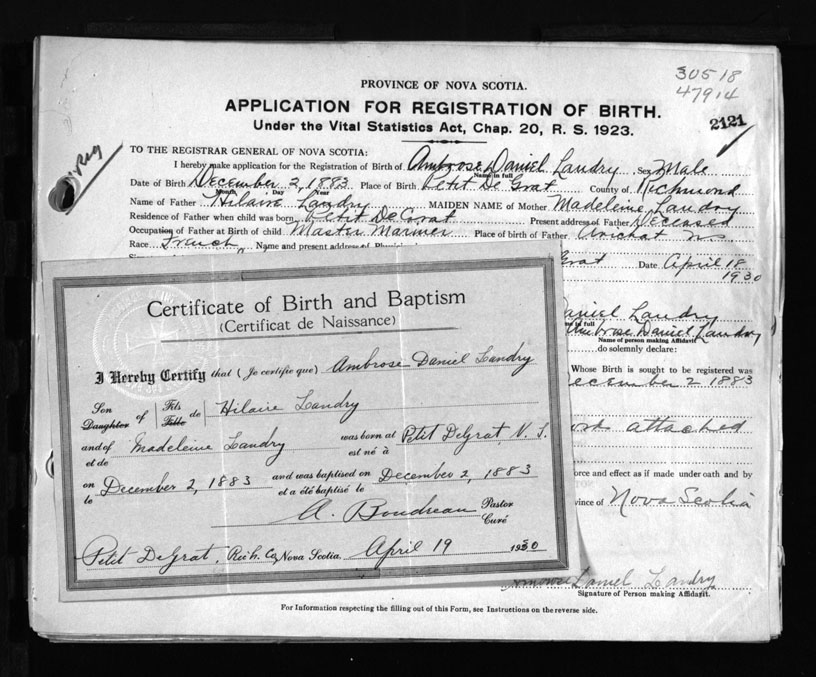 30518
47914
PROVINCE OF NOVA SCOTIA.
APPLICATION FOR REGISTRATION OF BIRTH.
2121
Under the Vital Statistics Act, Chap. 20, R. S. 1923.
Reg
TO THE REGISTRAR GENERAL OF NOVA SCOTIA:
I hereby make application for the Registration of Birth of Ambrose Daniel Landry Sex Male
Name in full
Date of Birth December 2, 1883 Place of Birth Petit De Grat County of Richmond
Month Day Year
Name of Father Hilaire Landry MAIDEN NAME of Mother Madeleine Landry
Residence of Father when child was born Petit De Grat Present address of Father Deceased
Occupation of Father at Birth of child Master Mariner Place of birth of Father Arichat N.S.
Race French Name and present address of
Grat Date April 18
1930
Certificate of Birth and Baptism
(Certificat de Naissance)
I Hereby Certify that (Je certifie que) Ambrose Daniel Landry
Son Daughter of Fils Fille de Hilaire Landry
and of et de Madeleine Landry was born at est né à Petit DeGrat N. S.
on le December 2, 1883 and was baptised on et a été baptisé le December 2, 1883
A. Boudreau Pastor Curé
Petit DeGrat, Rich. Co, Nova Scotia, April 19 1930
Daniel Landry
in full
Ambrose Daniel Landry
Name of person making Affidavit
do solemnly declare:
Whose Birth is sought to be registered was
December 2 1883
attached
force and effect as if made under oath and by
vince of Nova Scotia
Ambrose Daniel Landry
Signature of Person making Affidavit.
For Information respecting the filling out of this Form, see Instructions on the reverse side.